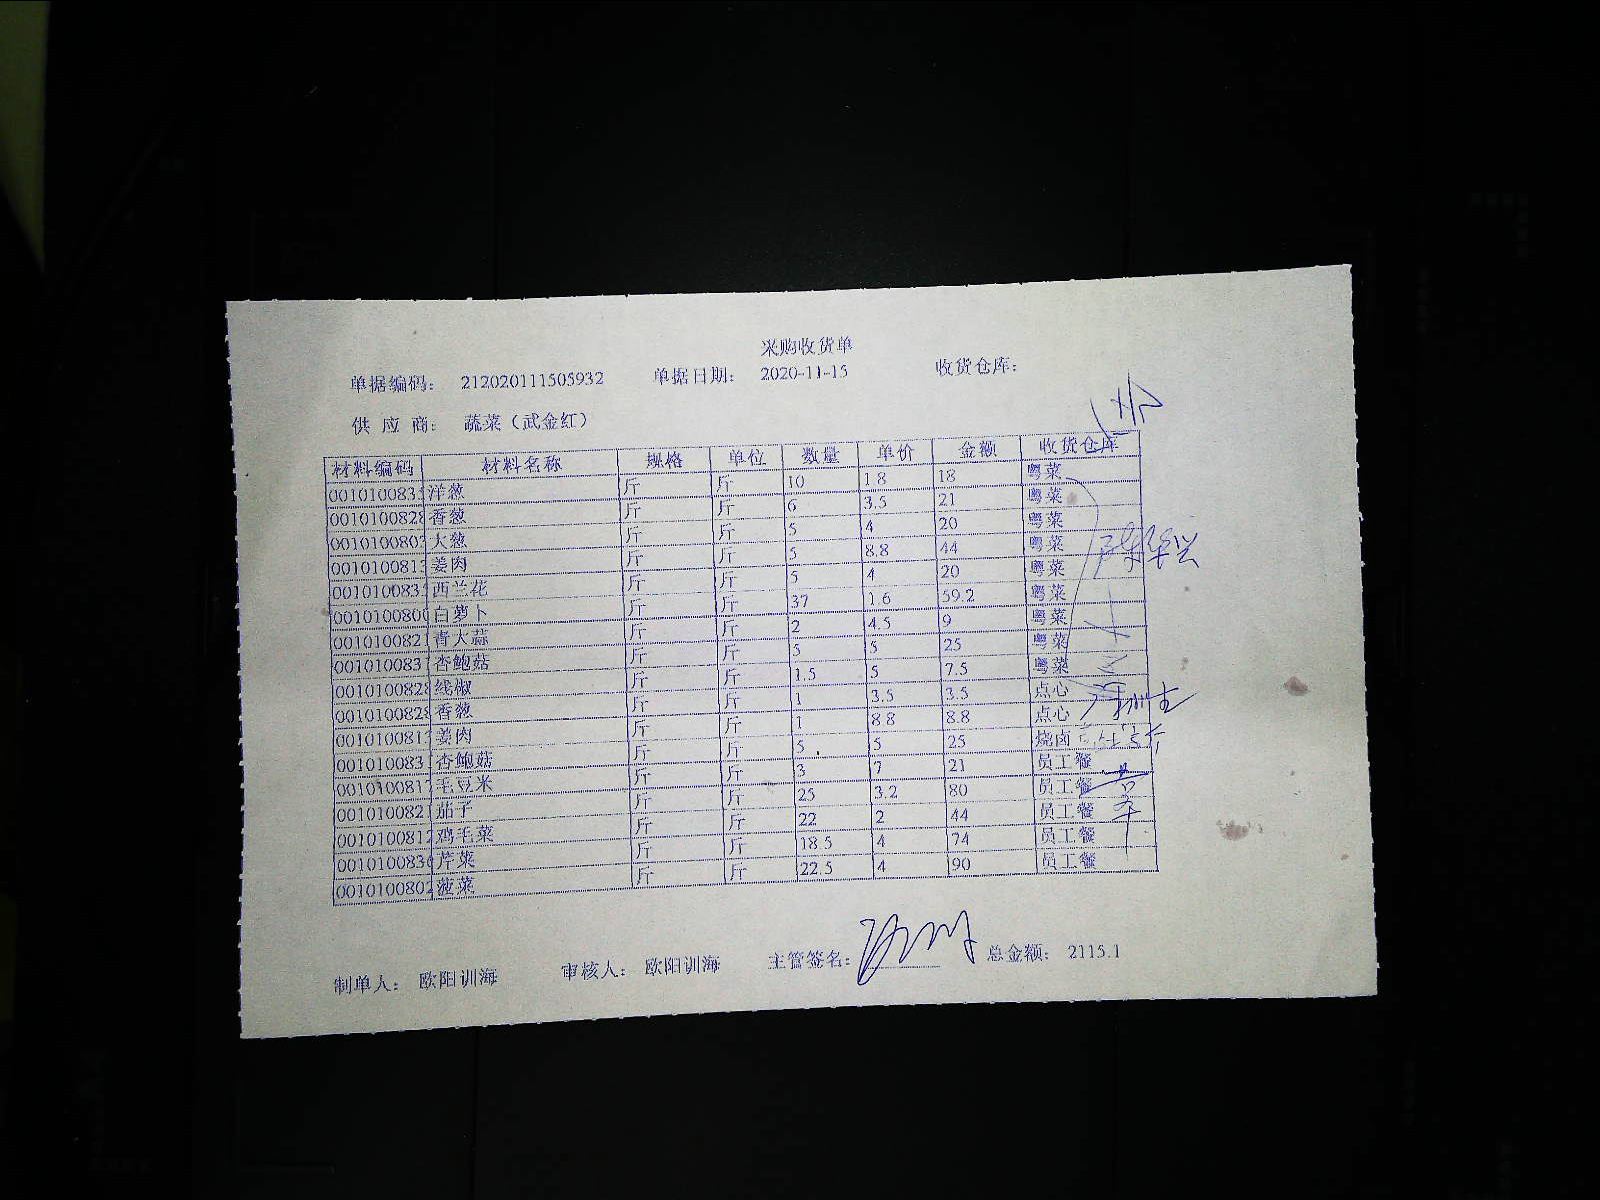 采购收货单
单据编码: 212020111505932 单据日期: 2020-11-15 收货仓库:
供 应 商: 蔬菜（武金红）
材料编码 材料名称 规格 单位 数量 单价 金额 收货仓库
001010083 洋葱 斤 斤 10 1.8 18 粤菜
001010082 香葱 斤 斤 6 3.5 21 粤菜
001010080 大葱 斤 斤 5 4 20 粤菜
001010081 姜肉 斤 斤 5 8.8 44 粤菜
001010083 西兰花 斤 斤 5 4 20 粤菜
001010080 白萝卜 斤 斤 37 1.6 59.2 粤菜
001010082 青大蒜 斤 斤 2 4.5 9 粤菜
001010083 杏鲍菇 斤 斤 5 5 25 粤菜
001010082 线椒 斤 斤 1.5 5 7.5 粤菜
001010082 香葱 斤 斤 1 3.5 3.5 点心
001010081 姜肉 斤 斤 1 8.8 8.8 点心
001010083 杏鲍菇 斤 斤 5 5 25 烧卤
001010081 毛豆米 斤 斤 3 7 21 员工餐
001010082 茄子 斤 斤 25 3.2 80 员工餐
001010081 鸡毛菜 斤 斤 22 2 44 员工餐
001010083 芹菜 斤 斤 18.5 4 74 员工餐
001010080 菠菜 斤 斤 22.5 4 90 员工餐
制单人: 欧阳训海 审核人: 欧阳训海 主管签名: 总金额: 2115.1